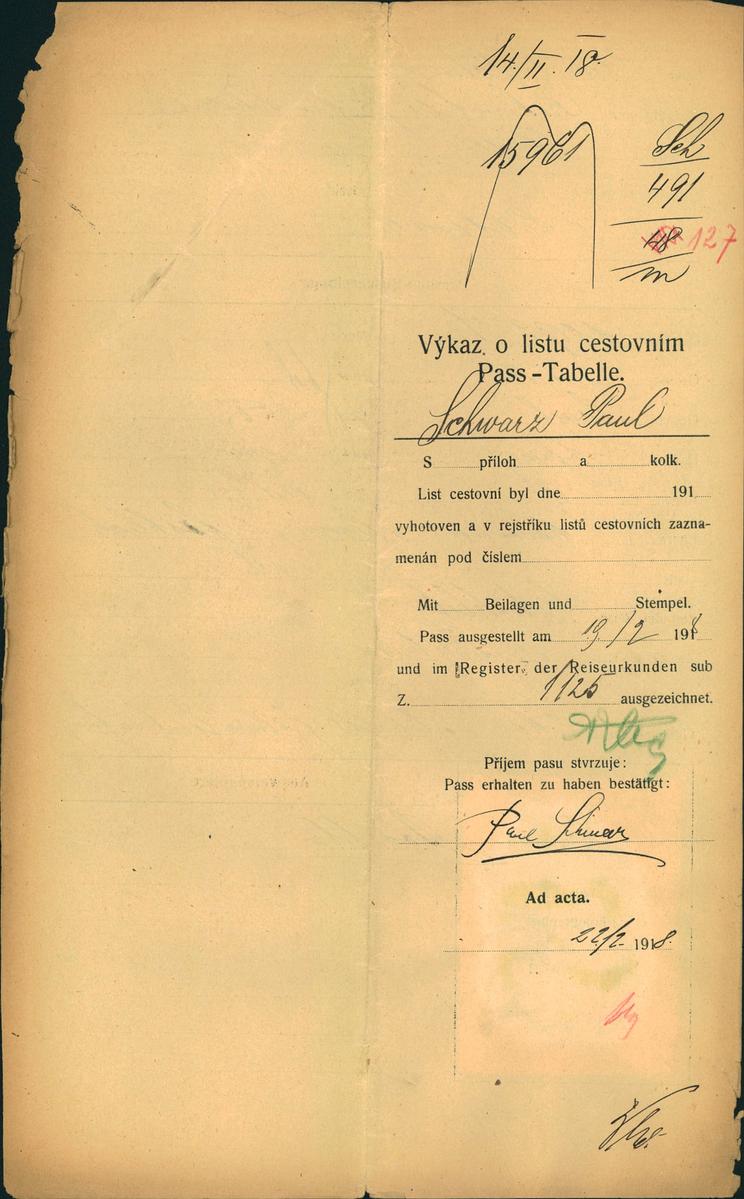 14./II. 18.
15961
Sch
491
48 127
m
Výkaz o listu cestovním
Pass-Tabelle.
Schwarz Paul
S příloh a kolk.
List cestovní byl dne 191
vyhotoven a v rejstříku listů cestovních zazna-
menán pod číslem
Mit Beilagen und Stempel.
Pass ausgestellt am 19/2 1918
und im Register der Reiseurkunden sub
Z. 1125 ausgezeichnet.
Příjem pasu stvrzuje:
Pass erhalten zu haben bestätigt:
Paul Schwarz
Ad acta.
22/2 1918.